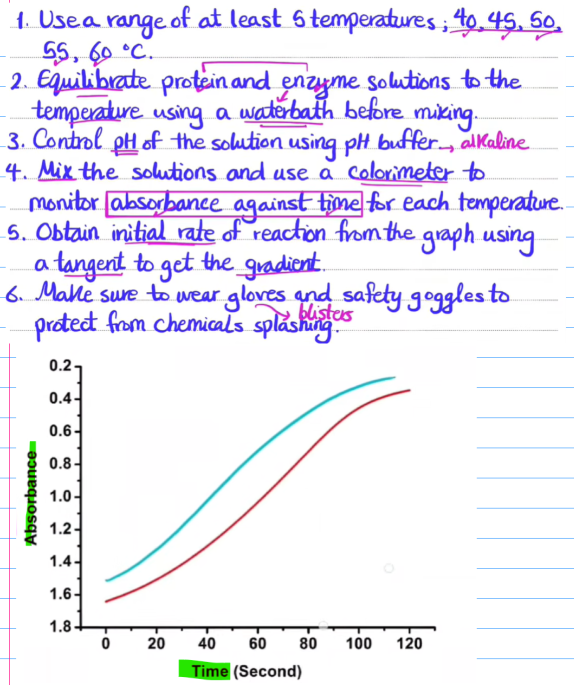 1. Use a range of at least 5 temperatures ; 40, 45, 50,
55, 60 °C.
2. Equilibrate protein and enzyme solutions to the
temperature using a waterbath before mixing.
3. Control pH of the solution using pH buffer → alkaline
4. Mix the solutions and use a colorimeter to
monitor absorbance against time for each temperature.
5. Obtain initial rate of reaction from the graph using
a tangent to get the gradient.
6. Make sure to wear gloves and safety goggles to
→ blisters
protect from chemicals splashing.
0.2
0.4
0.6
0.8
1.0
1.2
1.4
1.6
1.8
Absorbance
0 20 40 60 80 100 120
Time (Second)